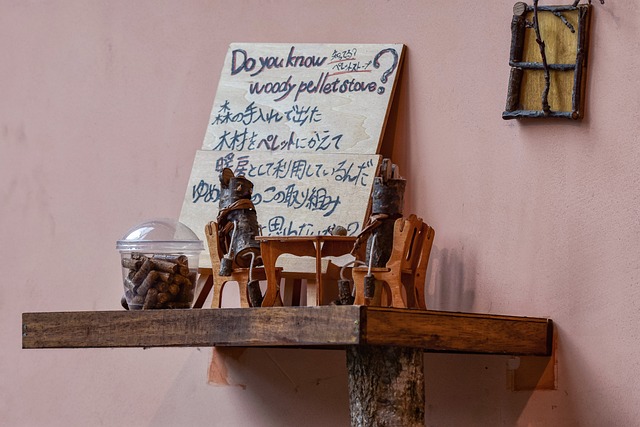 Do you know
知ってる?
ペレットストーブ
woody pellet stove?
森の手入れで出た
木材をペレットにかえて
暖房として利用しているんだ
ゆめ の この取り組み
思わない ?